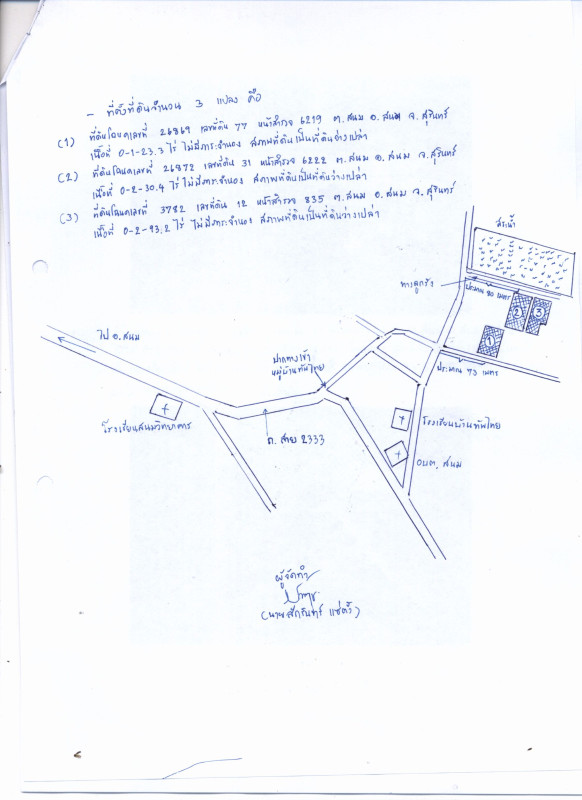 - ที่ตั้งที่ดินจำนวน 3 แปลง คือ
(1) ที่ดินโฉนดเลขที่ 26869 เลขที่ดิน 77 หน้าสำรวจ 6219 ต.สนม อ.สนม จ.สุรินทร์
เนื้อที่ 0-1-23.3 ไร่ ไม่มีภาระจำนอง สภาพที่ดินเป็นที่ดินว่างเปล่า
(2) ที่ดินโฉนดเลขที่ 26872 เลขที่ดิน 31 หน้าสำรวจ 6222 ต.สนม อ.สนม จ.สุรินทร์
เนื้อที่ 0-2-30.4 ไร่ ไม่มีภาระจำนอง สภาพที่ดินเป็นที่ดินว่างเปล่า
(3) ที่ดินโฉนดเลขที่ 3782 เลขที่ดิน 12 หน้าสำรวจ 835 ต.สนม อ.สนม จ.สุรินทร์
เนื้อที่ 0-2-93.2 ไร่ ไม่มีภาระจำนอง สภาพที่ดินเป็นที่ดินว่างเปล่า
สระน้ำ
ทางลูกรัง
ประมาณ 90 เมตร
2
3
1
ไป อ.สนม
ปากทางเข้า
หมู่บ้านทัพไทย
ประมาณ 70 เมตร
โรงเรียนสนมวิทยาคาร
ถ. สาย 2333
โรงเรียนบ้านทัพไทย
อบต. สนม
ผู้จัดทำ